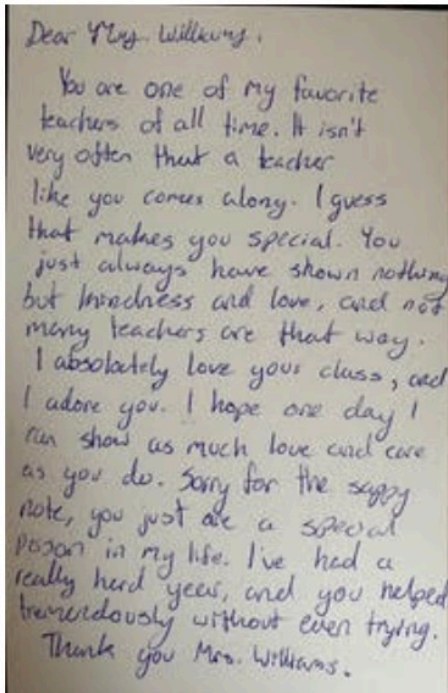 Dear Mrs. Williams,
You are one of my favorite
teachers of all time. It isn't
very often that a teacher
like you comes along. I guess
that makes you special. You
just always have shown nothing
but kindness and love, and not
many teachers are that way.
I absolutely love your class, and
I adore you. I hope one day I
can show as much love and care
as you do. Sorry for the sappy
note, you just are a special
person in my life. I've had a
really hard year, and you helped
tremendously without even trying.
Thank you Mrs. Williams.